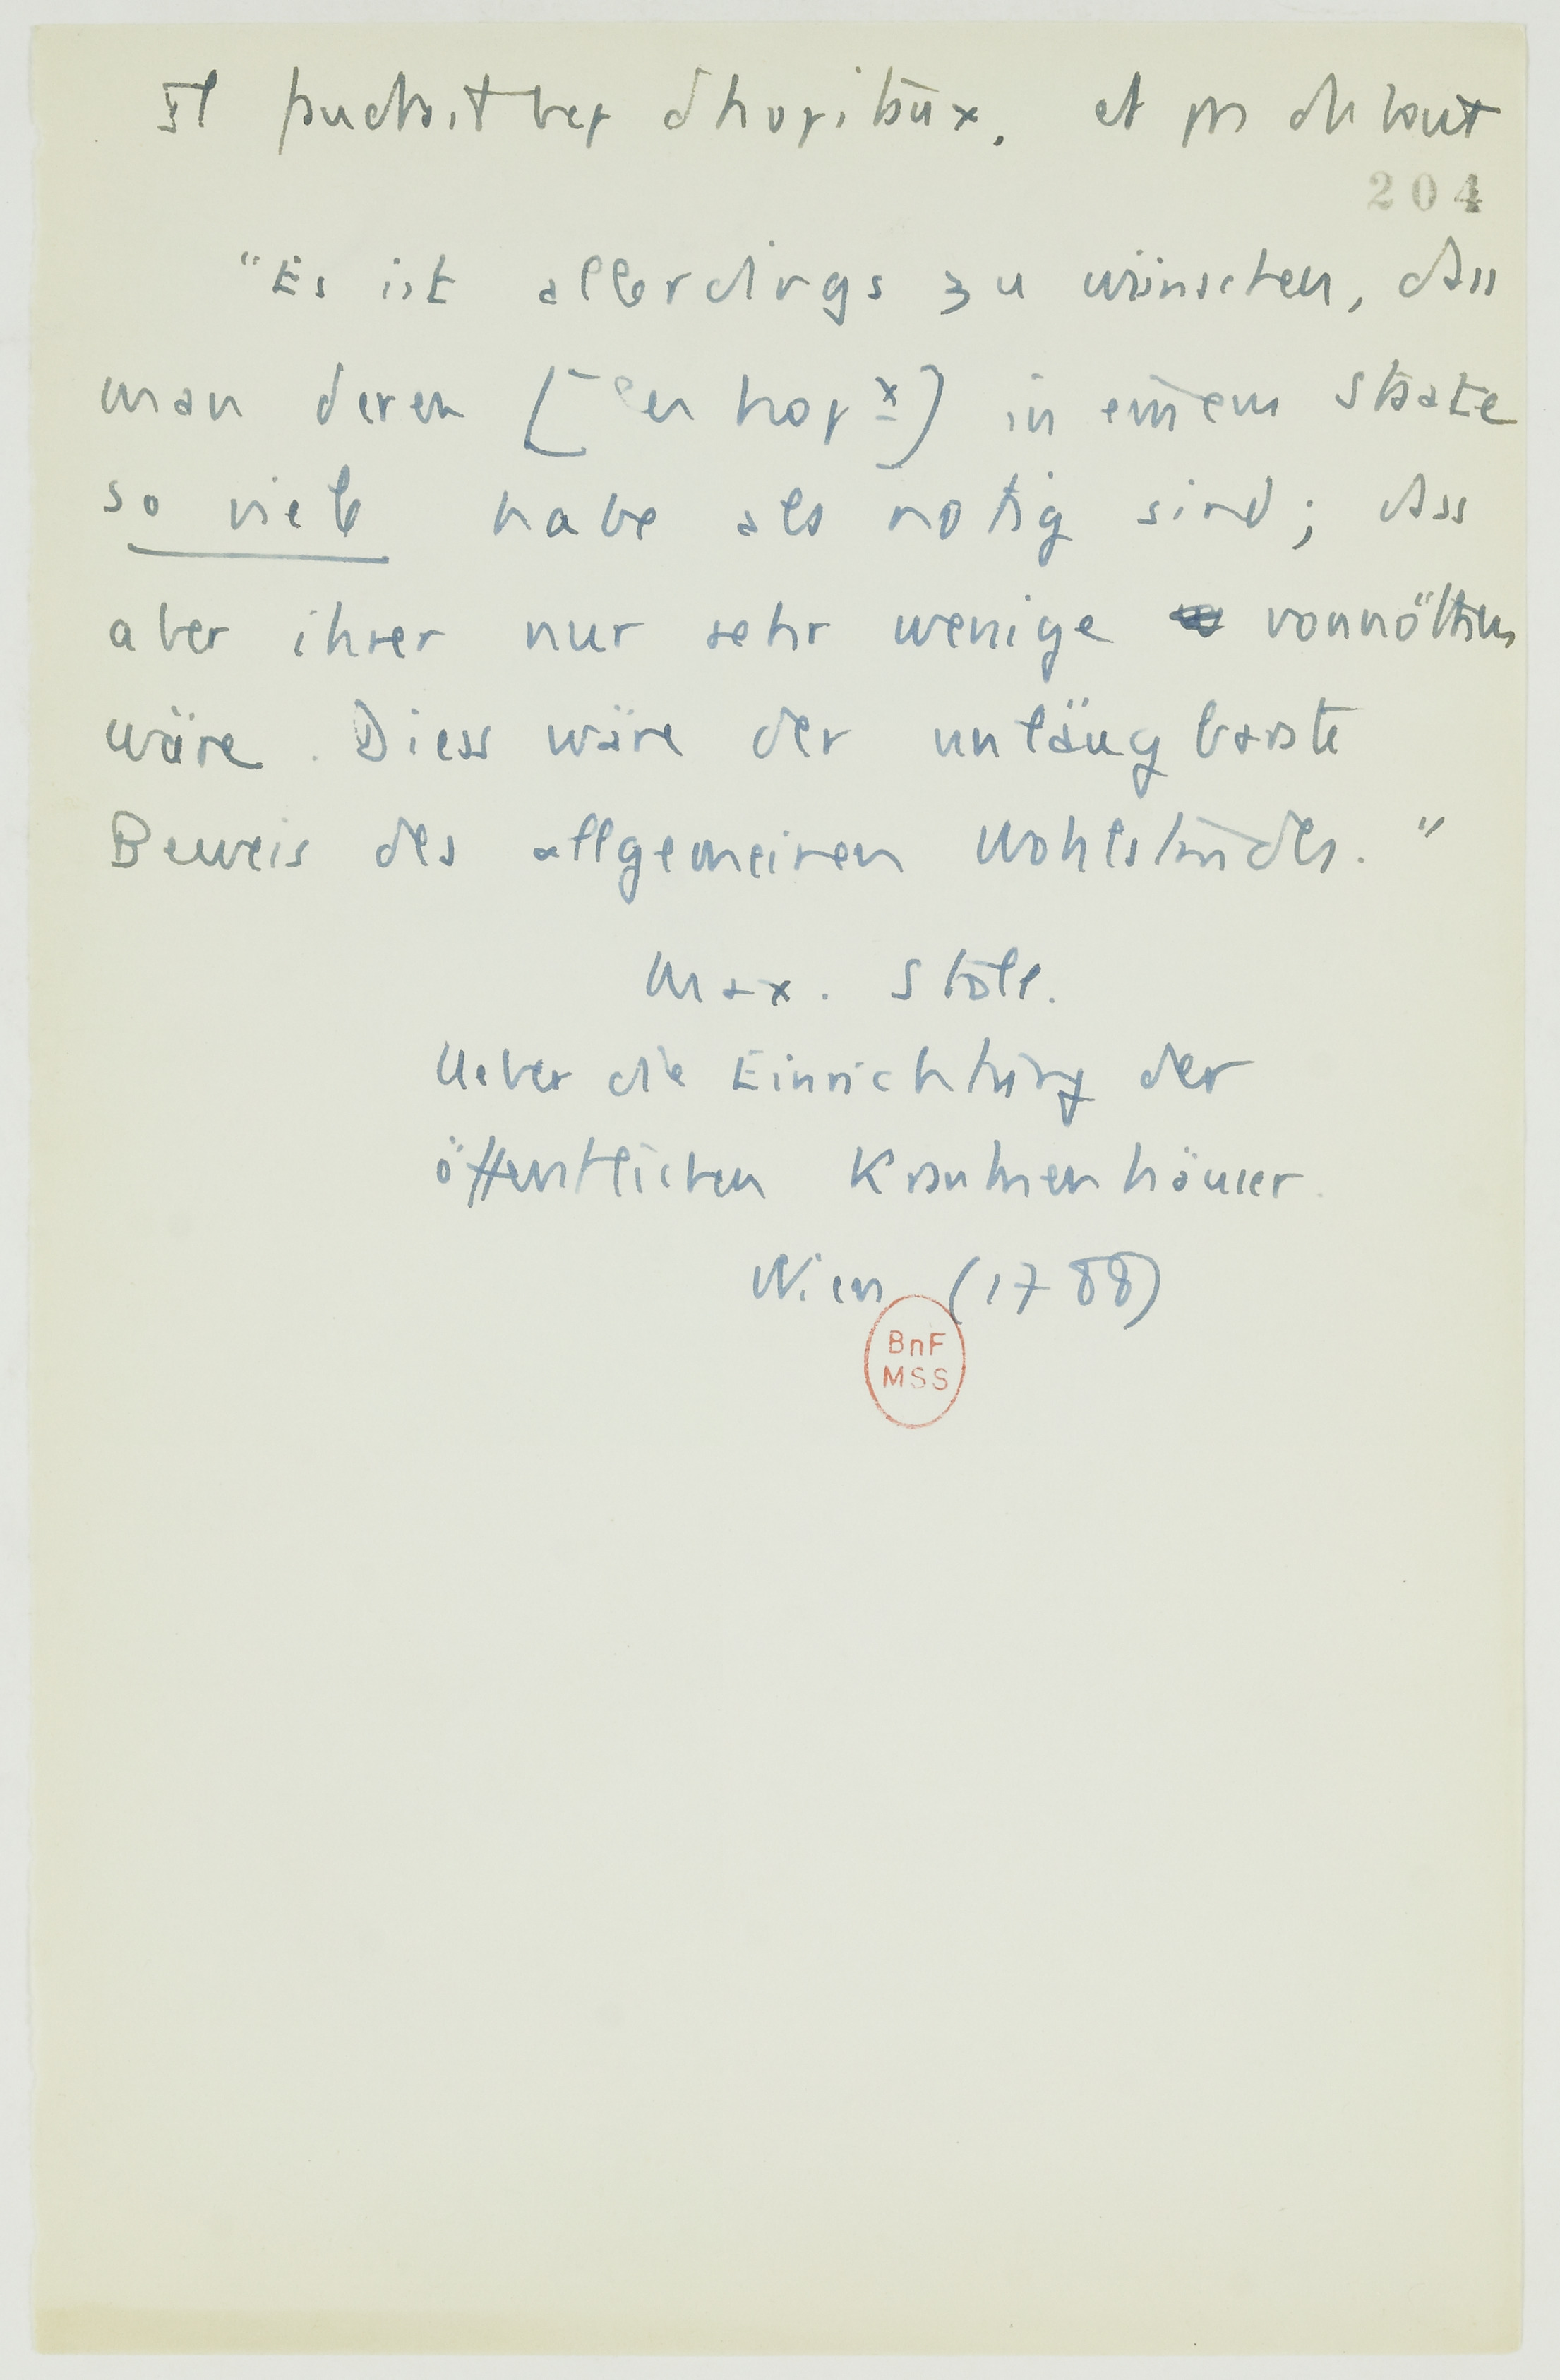 Il faudrait bcp d'hopitaux. et pr cela tout
204
"Es ist allerdings zu wünschen, dass
man deren (= les hop^x) in einem Staate
so viele habe als notig sind; dass
aber ihrer nur sehr wenige vonnöthen
wäre. Diess wäre der unläugbarste
Beweis des allgemeinen Wohlstandes."
Max. Stoll.
Ueber die Einrichtung der
öffentlichen Krankenhäuser.
Wien (1788)
BnF
MSS